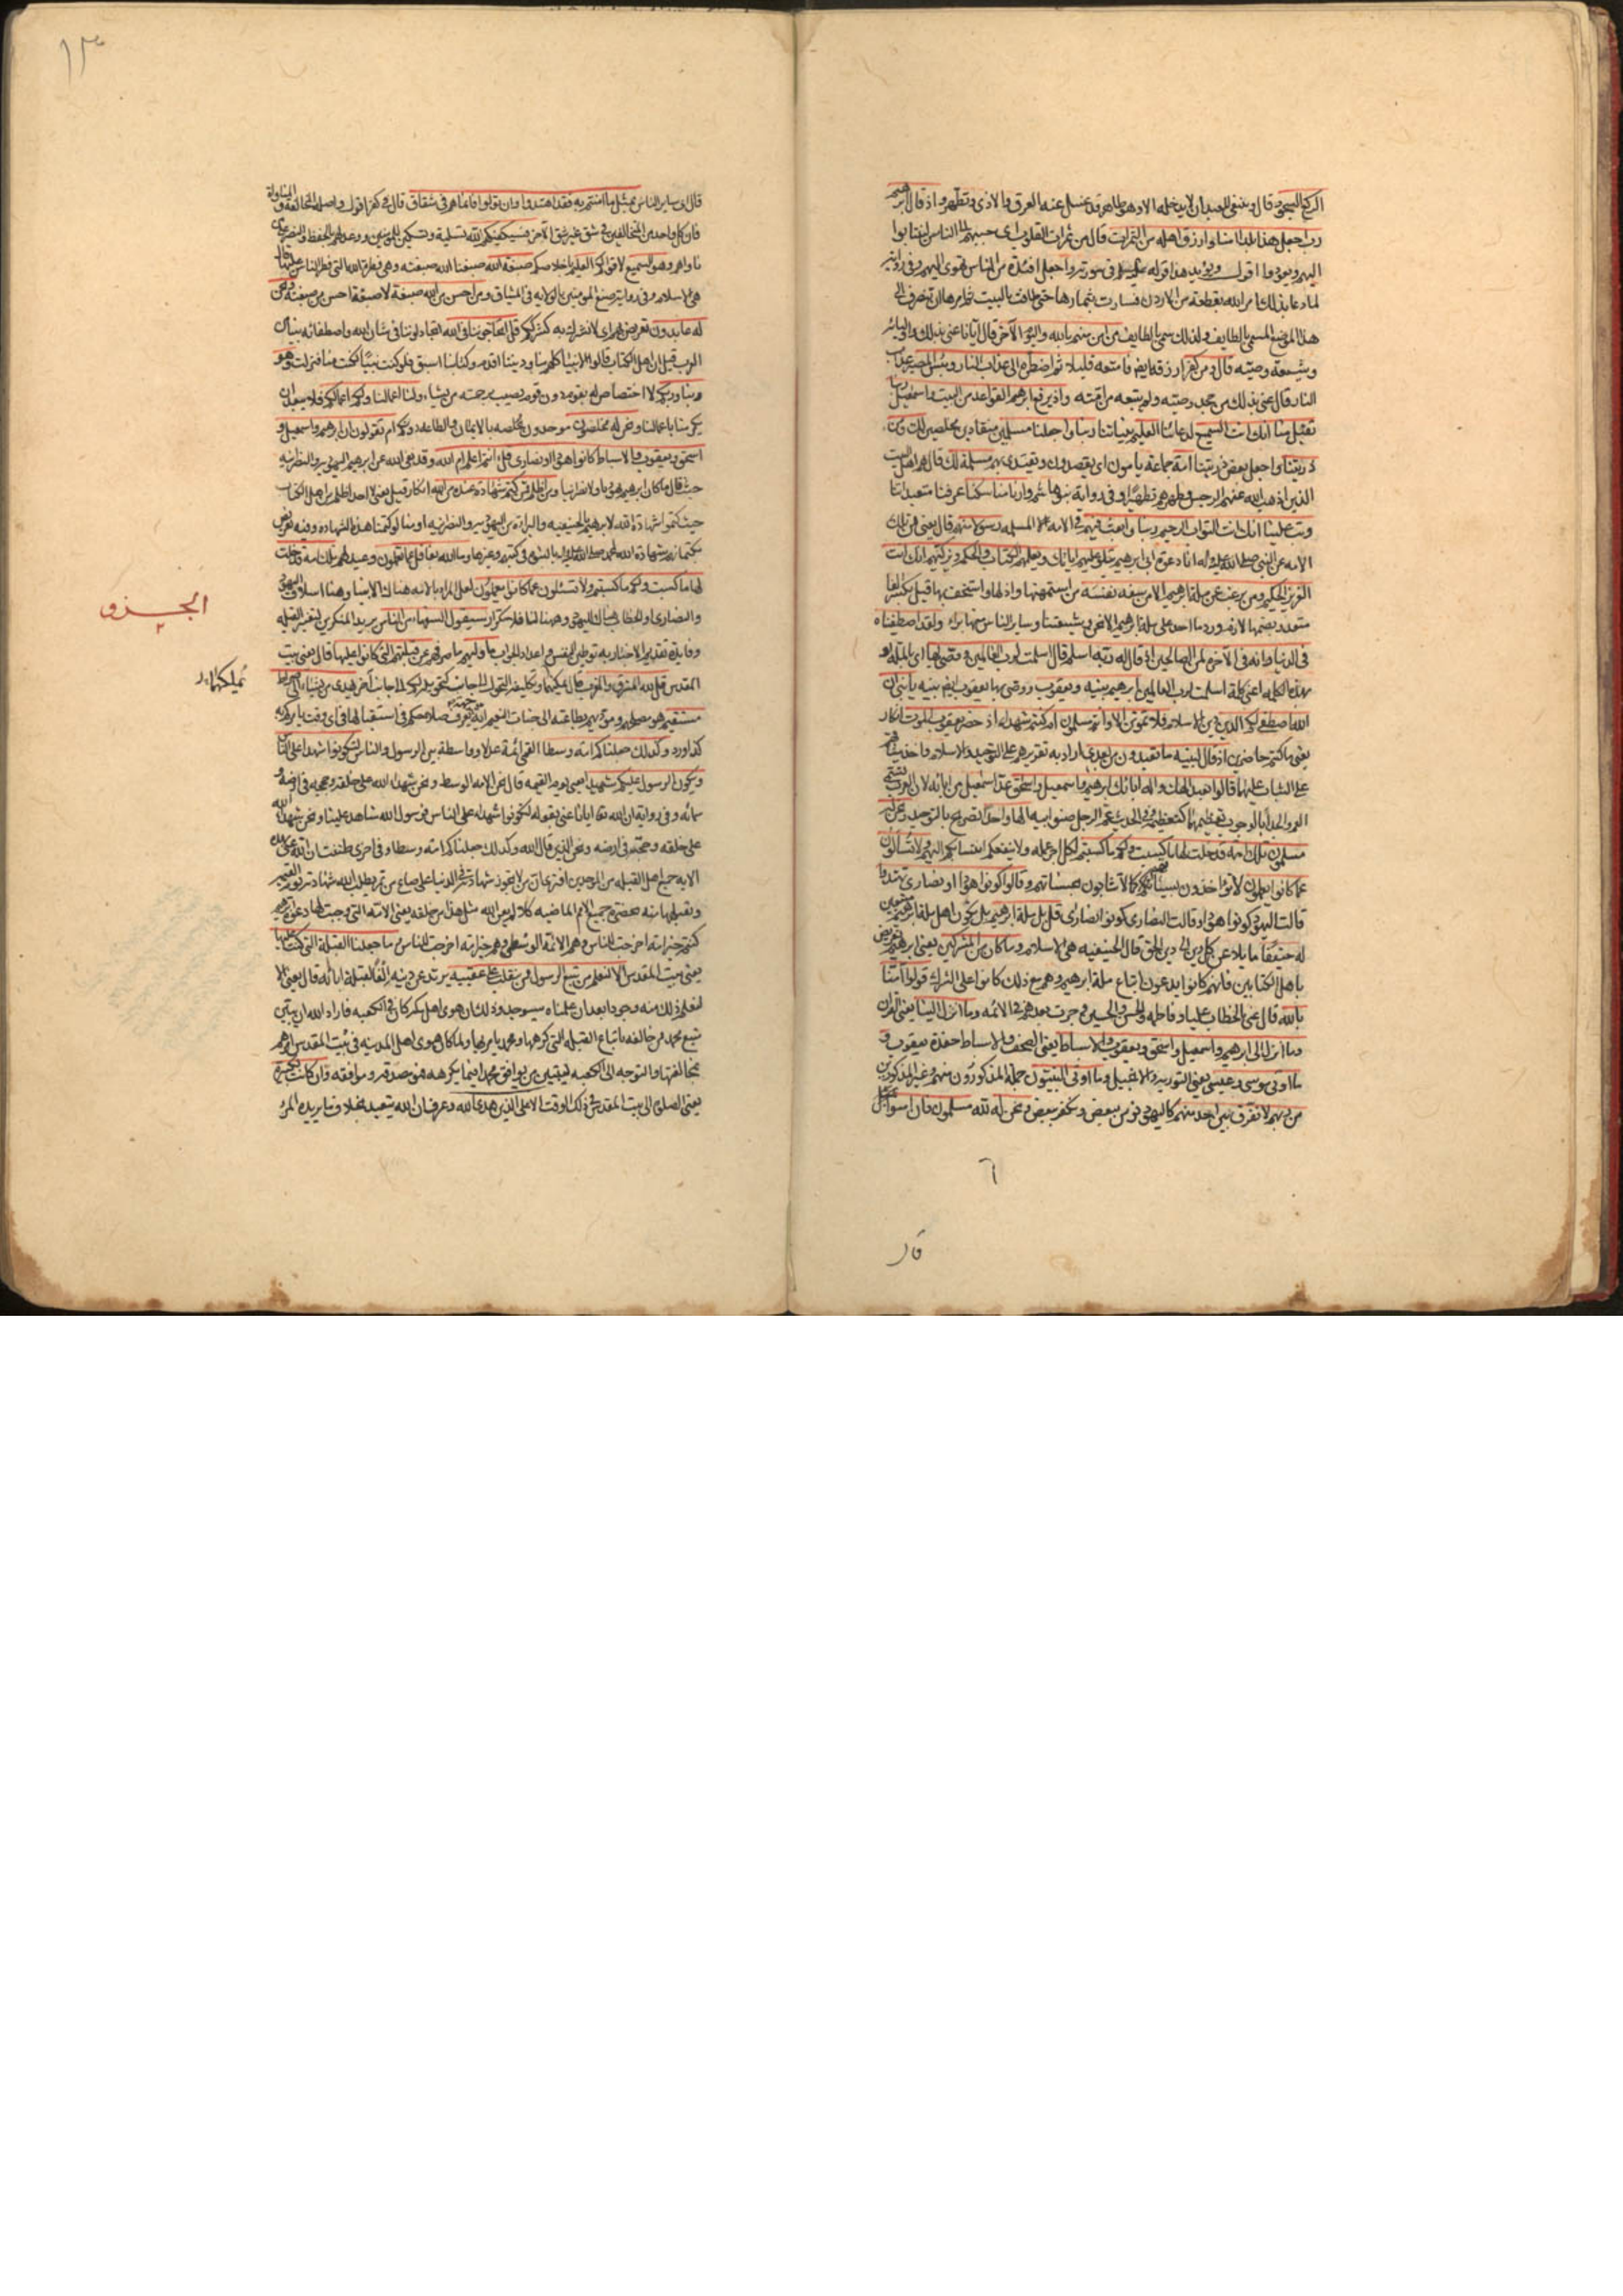 الركع السجود قال ينبغى للعبد ان لا يدخله الا وهو طاهر قد غسل عنه العرق والاذى وتطهر واذ قال ابرهيم
رب اجعل هذا بلدا امنا وارزق اهله من الثمرات قال من ثمرات القلوب اى حببهم الى الناس لينتابوا
اليهم ويعودوا اقول ويؤيد هذا قوله فى سورته واجعل افئدة من الناس تهوى اليهم وفى رواية
لما دعا بذلك امر الله بقطعة من الاردن فسارت بثمارها حتى طافت بالبيت ثم امرها ان تنصرف الى
هذا الموضع المسمى بالطايف ولذلك سمى بالطايف من امن منهم بالله واليوم الآخر قال ايانا عنى بذلك واوليائه
وشيعة وصيه قال ومن كفر ارزقه ايضا فامتعه قليلا ثم اضطره الى عذاب النار وبئس المصير عذاب
النار قال عنى بذلك من جحد وصيه ولم يتبعه من امته واذ يرفع ابرهيم القواعد من البيت واسمعيل ربنا
تقبل منا انك انت السميع لدعائنا العليم بنياتنا ربنا واجعلنا مسلمين منقادين مخلصين لك ومن
ذريتنا واجعل بعض ذريتنا امة جماعة يأمون اى يقصدون ويقتدى بهم مسلمة لك قال هم اهل البيت
الذين اذهب الله عنهم الرجس وطهرهم تطهيرا وفى رواية بنو هاشم وارنا مناسكنا عرفنا متعبداتنا
وتب علينا انك انت التواب الرحيم ربنا وابعث فيهم فى الامة المسلمة رسولا منهم قال يعنى من تلك
الامة عن النبى صلى الله عليه وآله انا دعوة ابى ابرهيم يتلو عليهم اياتك ويعلمهم الكتاب والحكمة ويزكيهم انك انت
العزيز الحكيم ومن يرغب عن ملة ابرهيم الا من سفه نفسه من استمهنها واذلها واستخف بها قيل بكسر الفا
متعد وبضمها لازم وورد ما احد على ملة ابرهيم الا نحن وشيعتنا وساير الناس منها براء ولقد اصطفيناه
فى الدنيا وانه فى الآخرة لمن الصالحين اذ قال له ربه اسلم قال اسلمت لرب العالمين ووصى بها اى بالملة او
بهذه الكلمة اعنى كلمة اسلمت لرب العالمين ابرهيم بنيه ويعقوب ووصى بها يعقوب ايضا بنيه يا بنى ان
الله اصطفى لكم الدين دين الاسلام فلا تموتن الا وانتم مسلمون ام كنتم شهداء اذ حضر يعقوب الموت انكار
يعنى ما كنتم حاضرين اذ قال لبنيه ما تعبدون من بعدى اراد به تقريرهم على التوحيد والاسلام واخذ ميثاقهم
على الثبات عليها قالوا نعبد الهك واله ابائك ابرهيم واسمعيل واسحق عد اسمعيل من ابائه لان العرب تسمى
العم والجد ابا لوجوب تعظيمهما كتعظيمه وفى الحديث عم الرجل صنو ابيه الها واحدا تصريح بالتوحيد ونحن له
مسلمون تلك امة قد خلت لها ما كسبت ولكم ما كسبتم لكل اجر عمله ولا ينفعكم انتسابكم اليهم ولا تسألون
عما كانوا يعملون لا تؤاخذون بسيئاتهم كما لا تثابون بحسناتهم وقالوا كونوا هودا او نصارى تهتدوا
قالت اليهود كونوا هودا وقالت النصارى كونوا نصارى قل بل ملة ابرهيم بل نكون اهل ملة ابرهيم متبعين
له حنيفا مايلا عن كل دين الى دين الحق قال الحنيفية هى الاسلام وما كان من المشركين يعنى ابرهيم تعريض
باهل الكتابين فانهم كانوا يدعون اتباع ملة ابرهيم وهم مع ذلك كانوا على الشرك قولوا آمنا
بالله قال عنى بالخطاب عليا وفاطمة والحسن والحسين وجرت بعدهم فى الائمة وما انزل الينا يعنى القران
وما انزل الى ابرهيم واسمعيل واسحق ويعقوب والاسباط يعنى الصحف والاسباط حفدة يعقوب و
ما اوتى موسى وعيسى يعنى التورية والانجيل وما اوتى النبيون جملة المذكورون منهم وغير المذكورين
من ربهم لا نفرق بين احد منهم كاليهود نؤمن ببعض ونكفر ببعض ونحن له لله مسلمون فان امنوا بمثل
٦
قال
١٣
قال اى ساير الناس بمثل ما امنتم به فقد اهتدوا وان تولوا فانما هم فى شقاق قال فى كفر اقول واصله المخالفة والمناواة
فان كل واحد من المتخالفين فى شق غير شق الآخر فسيكفيكهم الله تسلية وتسكين للمؤمنين ووعد لهم بالحفظ والنصر على
من ناواهم وهو السميع لاقوالكم العليم باخلاصكم صبغة الله صبغنا الله صبغته وهى فطرة الله التى فطر الناس عليها قال
هى الاسلام وفى رواية صبغ المؤمنين بالولاية فى الميثاق ومن احسن من الله صبغة لا صبغة احسن من صبغته ونحن
له عابدون تعريض بهم اى لا نشرك به كشرككم قل اتحاجوننا فى الله اتجادلوننا فى شان الله واصطفائه نبيا من
العرب قيل ان اهل الكتاب قالوا الانبيا كلهم منا وديننا اقدم وكتابنا اسبق فلو كنت نبيا لكنت منا فنزلت وهو
ربنا وربكم لا اختصاص له بقوم دون قوم يصيب برحمته من يشاء ولنا اعمالنا ولكم اعمالكم فلا يبعد ان
يكرمنا باعمالنا ونحن له مخلصون موحدون نخلصه بالايمان والطاعة دونكم ام تقولون ان ابرهيم واسمعيل و
اسحق ويعقوب والاسباط كانوا هودا او نصارى قل ءانتم اعلم ام الله وقد نفى الله عن ابرهيم اليهودية والنصرانية
حيث قال ما كان ابرهيم يهوديا ولا نصرانيا ومن اظلم ممن كتم شهادة عنده من الله انكار قيل يعنى لا احد اظلم من اهل الكتاب
حيث كتموا شهادة الله لابرهيم بالحنيفية والبراءة من اليهودية والنصرانية او منا لو كتمنا هذه الشهادة وفيه تعريض
بكتمانهم شهادة الله لمحمد صلى الله عليه وآله بالنبوة فى كتبهم وغيرها وما الله بغافل عما تعملون وعيد لهم تلك امة قد خلت
لها ما كسبت ولكم ما كسبتم ولا تسئلون عما كانوا يعملون لعل المراد بالامة هناك الانبيا وهنا اسلاف اليهود
والنصارى او الخطاب هناك لليهود وههنا لنا فلا تكرار سيقول السفهاء من الناس يريد المنكرين لتغيير القبلة
وفايدة تقديم الاخبار به توطين النفس واعداد الجواب ما وليهم ما صرفهم عن قبلتهم التى كانوا عليها قال يعنى بيت
المقدس قل لله المشرق والمغرب قال يملكهما وتكليفه التحول الى جانب كتحويله لكم الى جانب آخر يهدى من يشاء الى صراط
مستقيم هو مصلحهم ومؤديهم بطاعته الى جنات النعيم
كذا ورد وكذلك جعلناكم امة وسطا اقول ائمة عدلا وواسطة بين الرسول والناس لتكونوا شهداء على الناس
ويكون الرسول عليكم شهيدا يعنى يوم القيمة قال نحن الامة الوسط ونحن شهداء الله على خلقه وحججه فى ارضه و
سمائه وفى رواية ان الله تعا ايانا عنى بقوله لتكونوا شهداء على الناس فرسول الله شاهد علينا ونحن شهداء الله
على خلقه وحجته فى ارضه ونحن الذين قال الله وكذلك جعلناكم امة وسطا وفى اخرى ظننت ان الله عنى بهذه
الآية جميع اهل القبلة من الموحدين افترى ان من لا يجوز شهادته فى الدنيا على صاع من تمر يطلب الله شهادته يوم القيمة
ويقبلها منه بحضرة جميع الامم الماضية كلا لم يعن الله مثل هذا من خلقه يعنى الامة التى وجبت لها دعوة ابرهيم
كنتم خير امة اخرجت للناس وهم الائمة الوسطى وهم خير امة اخرجت للناس وما جعلنا القبلة التى كنت عليها
يعنى بيت المقدس الا لنعلم من يتبع الرسول ممن ينقلب على عقبيه يرتد عن دينه الفا لقبلة ابائه قال يعنى الا
لنعلم ذلك منه وجودا بعد ان علمناه سيوجد وذلك ان هوى اهل مكة كان فى الكعبة فاراد الله ان يبين
متبع محمد من خالفه باتباع القبلة التى كرهها ومحمد يامر بها ولما كان هوى اهل المدينة فى بيت المقدس امرهم
بمخالفتها والتوجه الى الكعبة ليتبين من يوافق محمدا فيما يكرهه فهو مصدقه وموافقه وان كانت لكبيرة
يعنى الصلوة الى بيت المقدس فى ذلك الوقت الا على الذين هدى الله وعرف ان الله يتعبد بخلاف ما يريده المرء
الجزو
٢
يملكهما